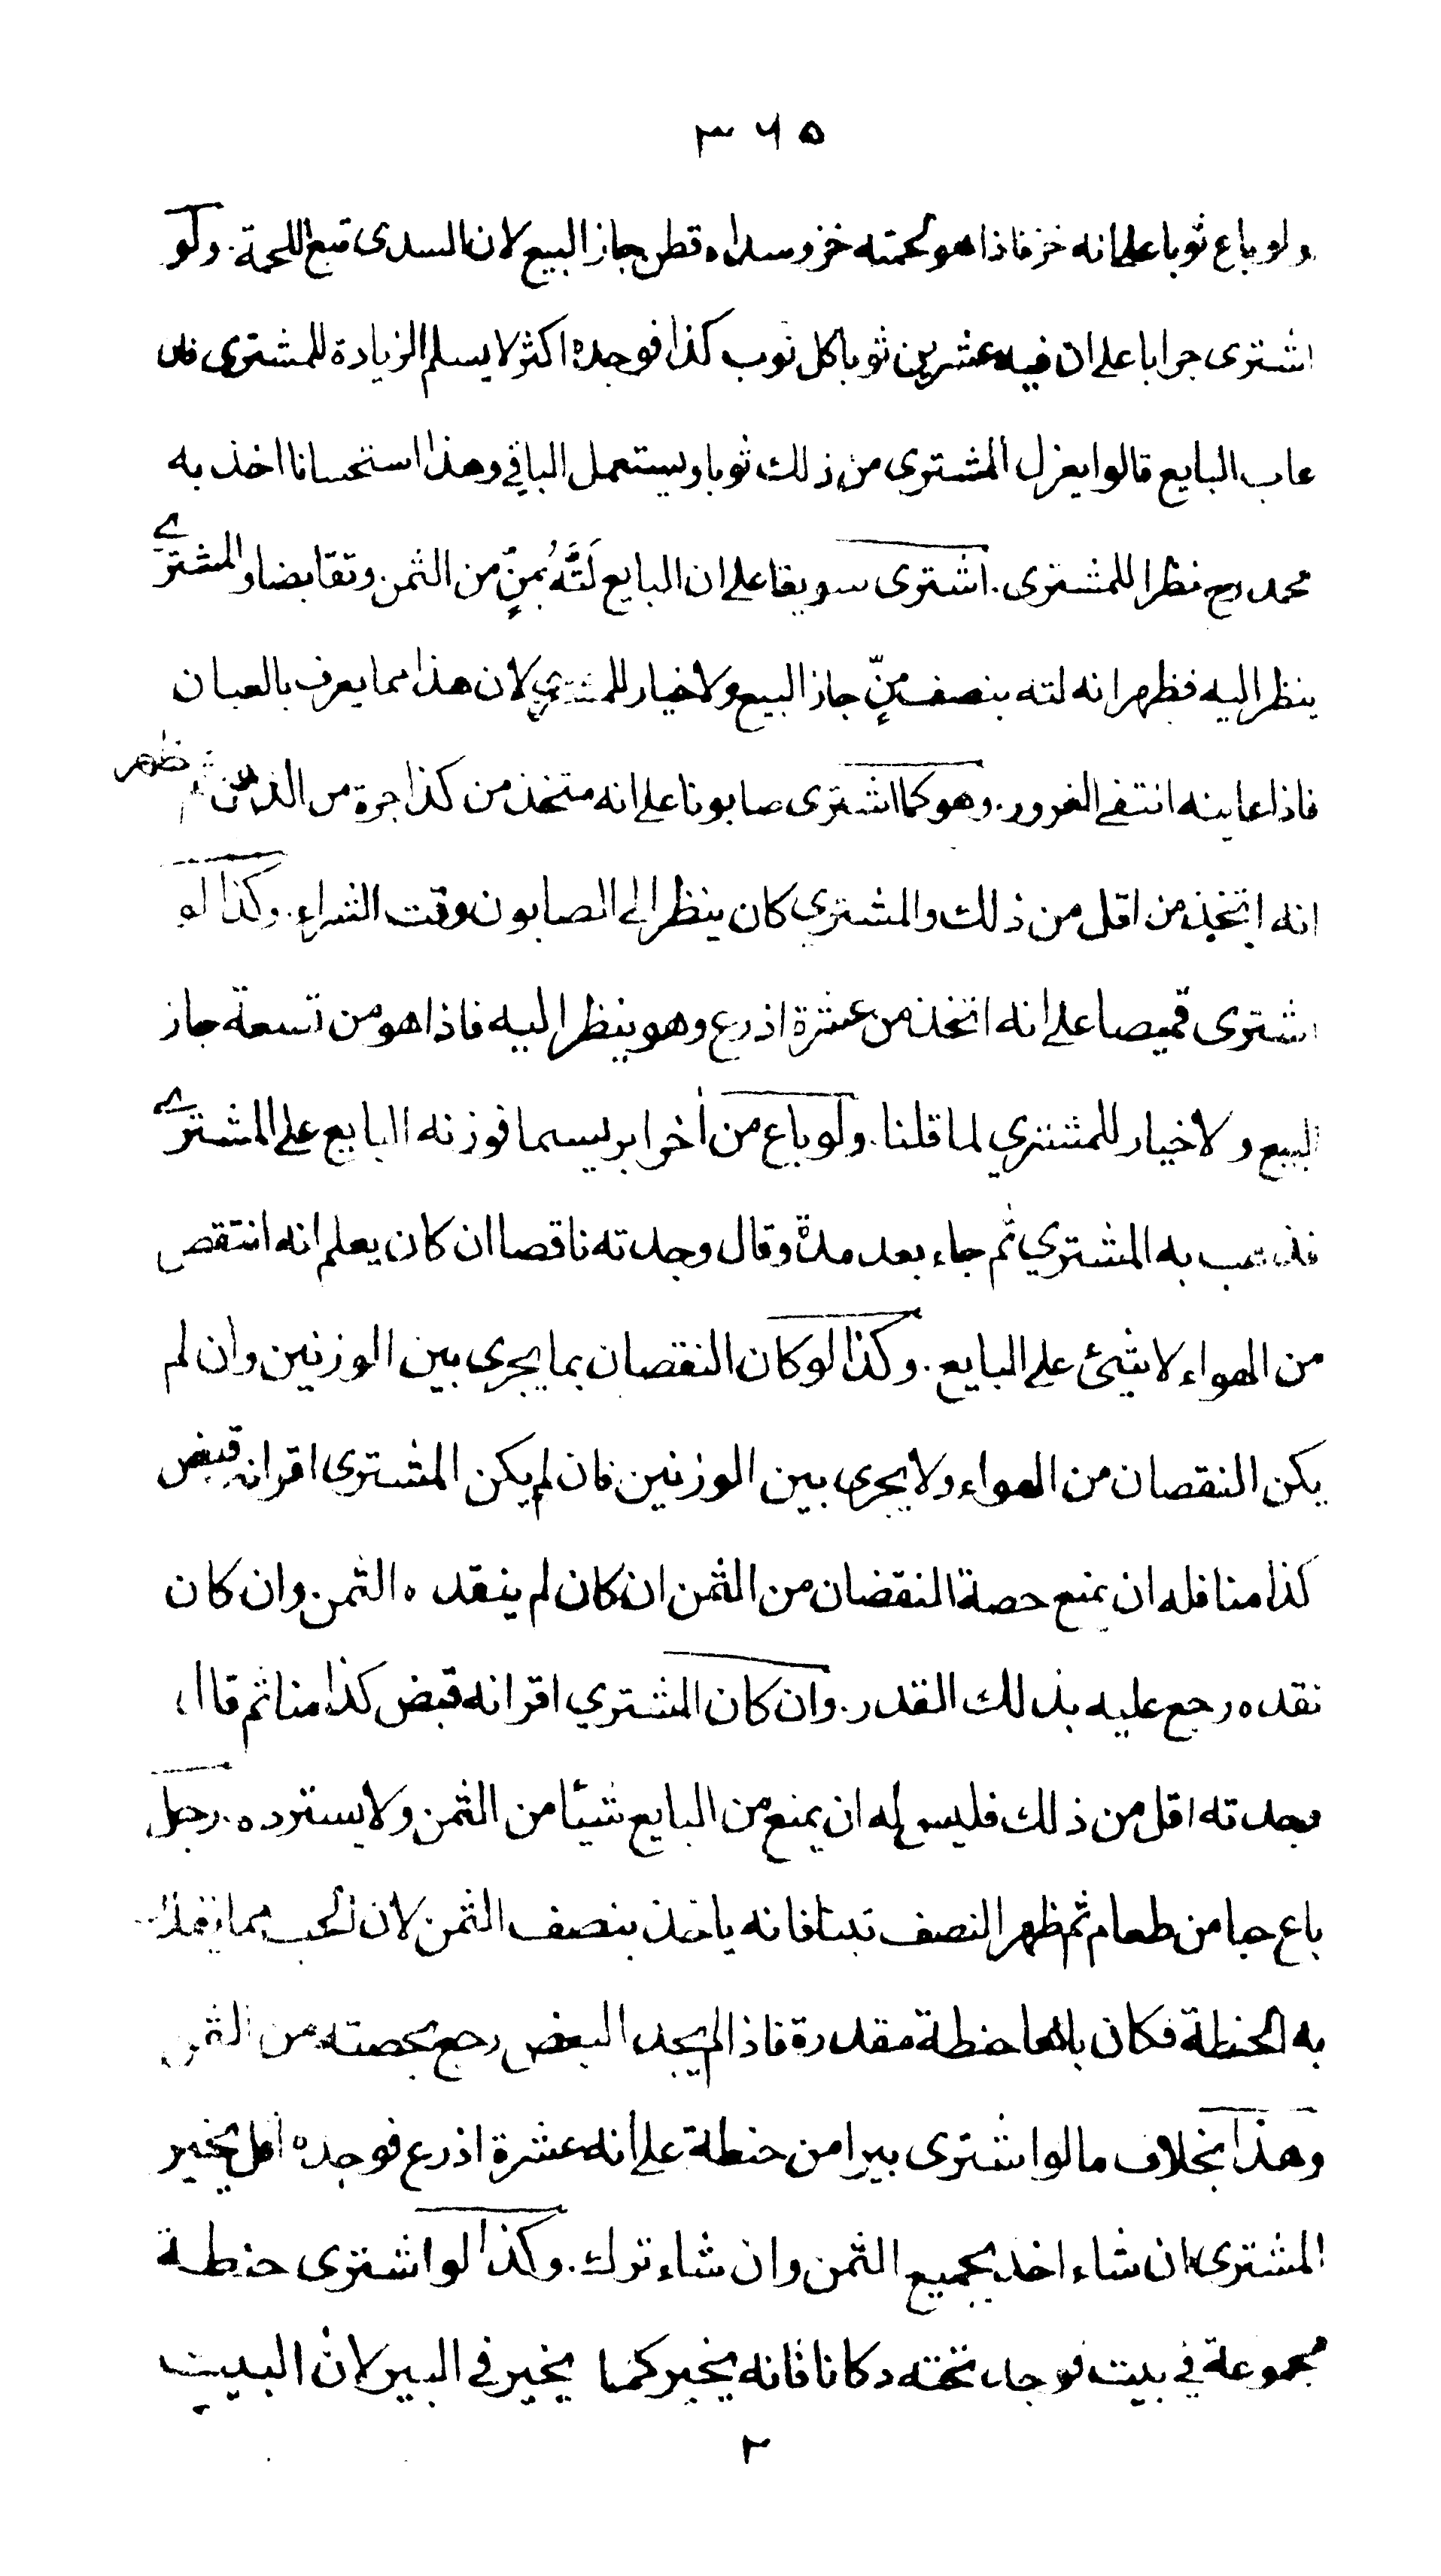 ٣٦٥
ولو باع ثوبا على انه خز فاذا هو لحمته خز وسداه قطن جاز البيع لان السدى تبع اللحمة. ولو
اشترى جرابا على ان فيه عشرين ثوبا كل ثوب كذا فوجده اكثر لا يسلم الزيادة للمشترى فان
غاب البايع قالوا يعزل المشترى من ذلك ثوبا ويستعمل الباقي وهذا استحسانا اخذ به
محمد رح نظرا للمشترى. اشترى سويقا على ان البايع لَتَّهُ بمنٍّ من الثمن. وتقابضا والمشترے
ينظر اليه فظهر انه لته بنصف منٍّ جاز البيع ولا خيار للمشتري لان هذا مما يعرف بالعيان
فاذا عاينه انتفى الغرور. وهو كما اشترى صابونا على انه متخذ من كذا جرة من الدهن ثم ظهر
انه اتخذ من اقل من ذلك والمشتري كان ينظر الى الصابون وقت الشراء. وكذا لو
اشترى قميصا على انه اتخذه من عشرة اذرع وهو ينظر اليه فاذا هو من تسعة جاز
البيع ولا خيار للمشتري لما قلنا. ولو باع من آخر ابريسما فوزنه البايع على المشترے
فذهب به المشتري ثم جاء بعد مدة وقال وجدته ناقصا ان كان يعلم انه انتقص
من الهواء لا شئ على البايع. وكذا لو كان النقصان بما يجرى بين الوزنين وان لم
يكن النقصان من الهواء ولا يجرى بين الوزنين فان لم يكن المشترى اقر انه قبض
كذا منا فله ان يمنع حصة النقضان من الثمن ان كان لم ينقده الثمن. وان كان
نقده رجع عليه بذلك القدر. وان كان المشتري اقر انه قبض كذا منا ثم قال
وجدته اقل من ذلك فليس له ان يمنع من البايع شيئا من الثمن ولا يسترده. رجل
باع حبا من طعام ثم ظهر النصف تبنا فانه ياخذ بنصف الثمن لان الحب مما
به الحنطة فكان بائعا حنطة مقدرة فاذا لم يجد البعض رجع بحصته من الثمن
وهذا بخلاف ما لو اشترى بيرا من حنطة على انه عشرة اذرع فوجده اقل يخير
المشترى ان شاء اخذ بجميع الثمن وان شاء ترك. وكذا لو اشترى حنطة
مجموعة في بيت فوجد تحته دكانا فانه يخير كما يخير في البير لان البيت
٢